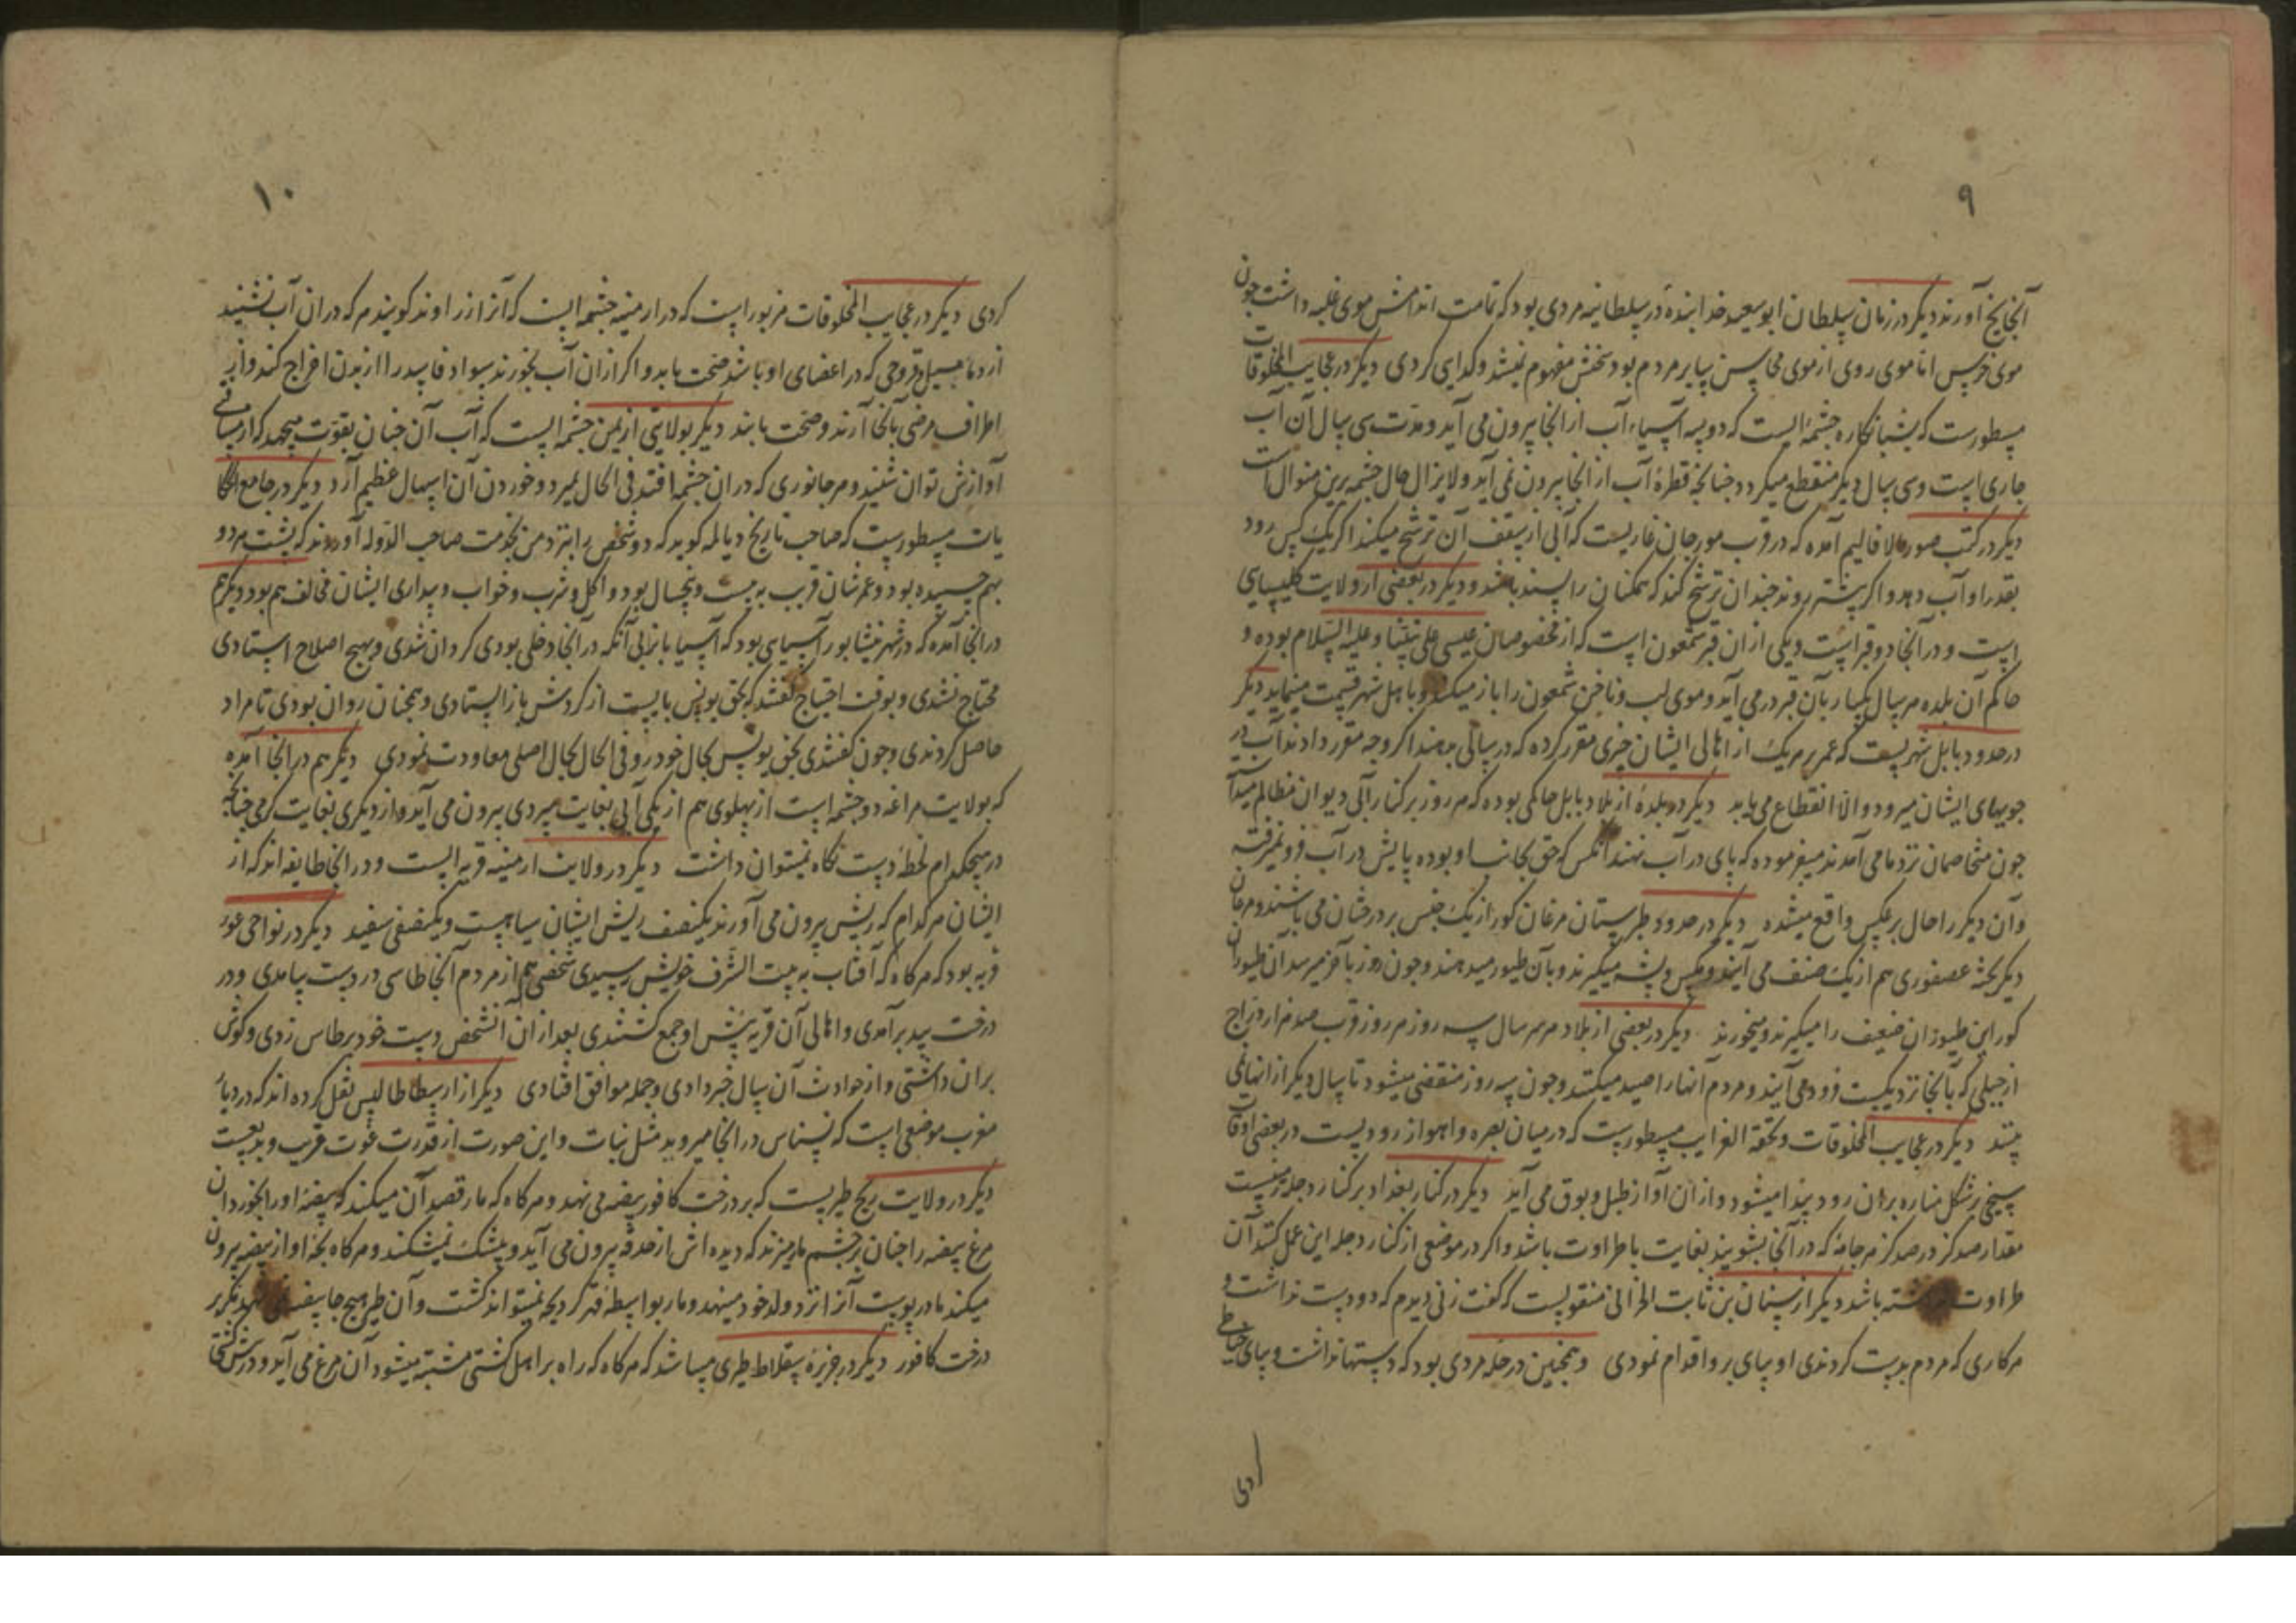 ۹
آنجا یخ آورند دیکر در زمان سلطان ابو سعید خدابنده در سلطانیه مردی بود که تمامت اندامش موی غلبه داشت جون
موی خرس اما موی روی از موی محاسن سایر مردم بود سخنش مفهوم نمیشد و کدایی کردی دیکر در عجایب المخلوقات
مسطورست که بشبانکاره جشمه ایست که دو سه آسیاء آب از انجا بیرون می آید و مدت سی سال آن آب
جاری است و سی سال دیکر منقطع میکردد جنانجه قطرهٔ آب از انجا بیرون نمی آید و لایزال حال جشمه برین منوال است
دیکر در کتب صور الاقالیم آمده که در قرب مورجان غاریست که آبی از سقف آن ترشح میکند اکر یک کس رود
بقدر او آب دهد و اکر بیشتر روند جندان ترشح کند که همکنان را بسند باشد و دیکر در بعضی از ولایت کلیسیایی
است و در آنجا دو قبر است و یکی از ان قبر شمعون است که از مخصوصان عیسی علی نبینا و علیه السلام بوده و
حاکم آن بلده هر سال یکبار بآن قبر در می آید و موی لب و ناخن شمعون را باز میکند و با اهل شهر قسمت مینماید دیکر
در حدود بابل شهریست که عمر بر هر یک از اهالی ایشان جیزی مقرر کرده که در سالی بدهند اکر وجه مقرر دادند آب در
جویهای ایشان میرود و الا انقطاع می یابد دیکر در بلدهٔ از بلاد بابل حاکمی بوده که هر روز بر کنار آبی دیوان مظالم میداشت
جون متخاصمان نزد ما می آمدند میفرموده که پای در آب نهند آنکس که حق بجانب او بوده پایش در آب فرو نمیرفته
و آن دیکر را حال برعکس واقع میشده دیکر در حدود طبرستان مرغان کور از یک جنس بر درختان می باشند و مرغان
دیکر بجثه عصفوری هم از یک صنف می آیند و مکس و پشه میکیرند و بآن طیور میدهند و جون روز بآخر میرسد آن طیوران
کور این طیوران ضعیف را میکیرند و میخورند دیکر در بعضی از بلاد هر سال سه روز هر روز قرب صد هزار دراج
از جبلی که بآنجا نزدیکست فرود می آیند و مردم آنها را صید میکنند و جون سه روز منقضی میشود تا سال دیکر از انها نمی
بینند دیکر در عجایب المخلوقات و تحفة الغرایب مسطورست که در میان بصره و اهواز رودیست در بعضی اوقات
سیخی بر شکل مناره بران رود پیدا میشود و از ان آواز طبل و بوق می آید دیکر در کنار بغداد بر کنار دجله زمینیست
مقدار صد کز در صد کز هر جامهٔ که در آنجا بشویند بغایت با طراوت باشد و اکر در موضعی از کنار دجله این عمل کنند آن
طراوت نداشته باشد دیکر از سنان بن ثابت الحرانی منقولیست که کفت زنی دیدم که دو دست نداشت و
هر کاری که مردم بدست کردندی او بپای برو اقدام نمودی و همجنین در حله مردی بود که دستها نداشت و بپای خیاطی
ردی
۱۰
کردی دیکر در عجایب المخلوقات مزبور است که در ارمینیه جشمه ایست که آنرا زراوند کویند هر که در ان آب نشیند
از دمامیل و قروحی که در اعضای او باشد صحت یابد و اکر ازان آب بخورند مواد فاسد را از بدن اخراج کند و از
اطراف مرضی بآنجا آرند و صحت یابند دیکر بولایتی از یمن جشمه ایست که آب آن جنان بقوت میجهد که از مسافتی
آوازش توان شنید و هر جانوری که در ان جشمه افتد فی الحال بمیرد و خوردن آن اسهال عظیم آرد دیکر در جامع الحکا
یات مسطورست که صاحب تاریخ دیالمه کوید که دو شخص را بنزد من بخدمت صاحب الدوله آوردند که پشت هر دو
بهم جسبیده بود و عمرشان قریب به بیست و پنجسال بود و اکل و شرب و خواب و بیداری ایشان مخالف هم بود دیکر هم
در انجا آمده که در شهر نیشابور آسیایی بود که آسیابانرا بی آنکه در آنجا دخلی بودی کردان شدی و بهیج اصلاح استادی
محتاج نشدی و بوقت احتیاج کفتندی که بحق یونس بایست از کردش باز ایستادی و همجنان روان بودی تا مراد
حاصل کردندی و جون کفتندی بحق یونس بحال خود رو فی الحال بحال اصلی معاودت نمودی دیکر هم در انجا آمده
که بولایت مراغه دو جشمه است از پهلوی هم از یکی آبی بغایت سردی بیرون می آید و از دیکری بغایت کرمی جنانجه
در هیجکدام لحظهٔ دست نکاه نمیتوان داشت دیکر در ولایت ارمینیه قریه ایست و در انجا طایفه اند که از
ایشان هر کدام که ریش بیرون می آورند یکنصف ریش ایشان سیاهست و یکنصفی سفید دیکر در نواحی غور
قریه بود که هر کاه که آفتاب به بیت الشرف خویش رسیدی شخصی هم از مردم آنجا طاسی در دست بیامدی و در
درخت بید برآمدی و اهالی آن قریه پیش او جمع کشتندی بعد از ان آنشخص دست خود بر طاس زدی و کوش
بران داشتی و از حوادث آن سال خبر دادی و جمله موافق افتادی دیکر از ارسطاطالیس نقل کرده اند که در دیار
مغرب موضعی است که نسناس در انجا میروید مثل نبات و این صورت از قدرت غوت قریب و بدیعست
دیکر در ولایت زنج طیریست که بر درخت کافور بیضه می نهد و هر کاه که مار قصد آن میکند که بیضهٔ او را بخورد ان
مرغ بیضه را جنان بر جشم مار میزند که دیده اش از حدقه بیرون می آید و بیشک نمیشکند و هر کاه بجهٔ او از بیضه بیرون
میکند مادر پوست آنرا نزد ولد خود مینهد و مار بواسطه قهر کرد بجه نمیتواند کشت و آن طیر هیج جا بیضه نمی نهد مکر بر
درخت کافور دیکر در جزیرهٔ سقلاط طیری میباشد که هر کاه که راه بر اهل کشتی مشتبه میشود آن مرغ می آید و در پیش کشتی